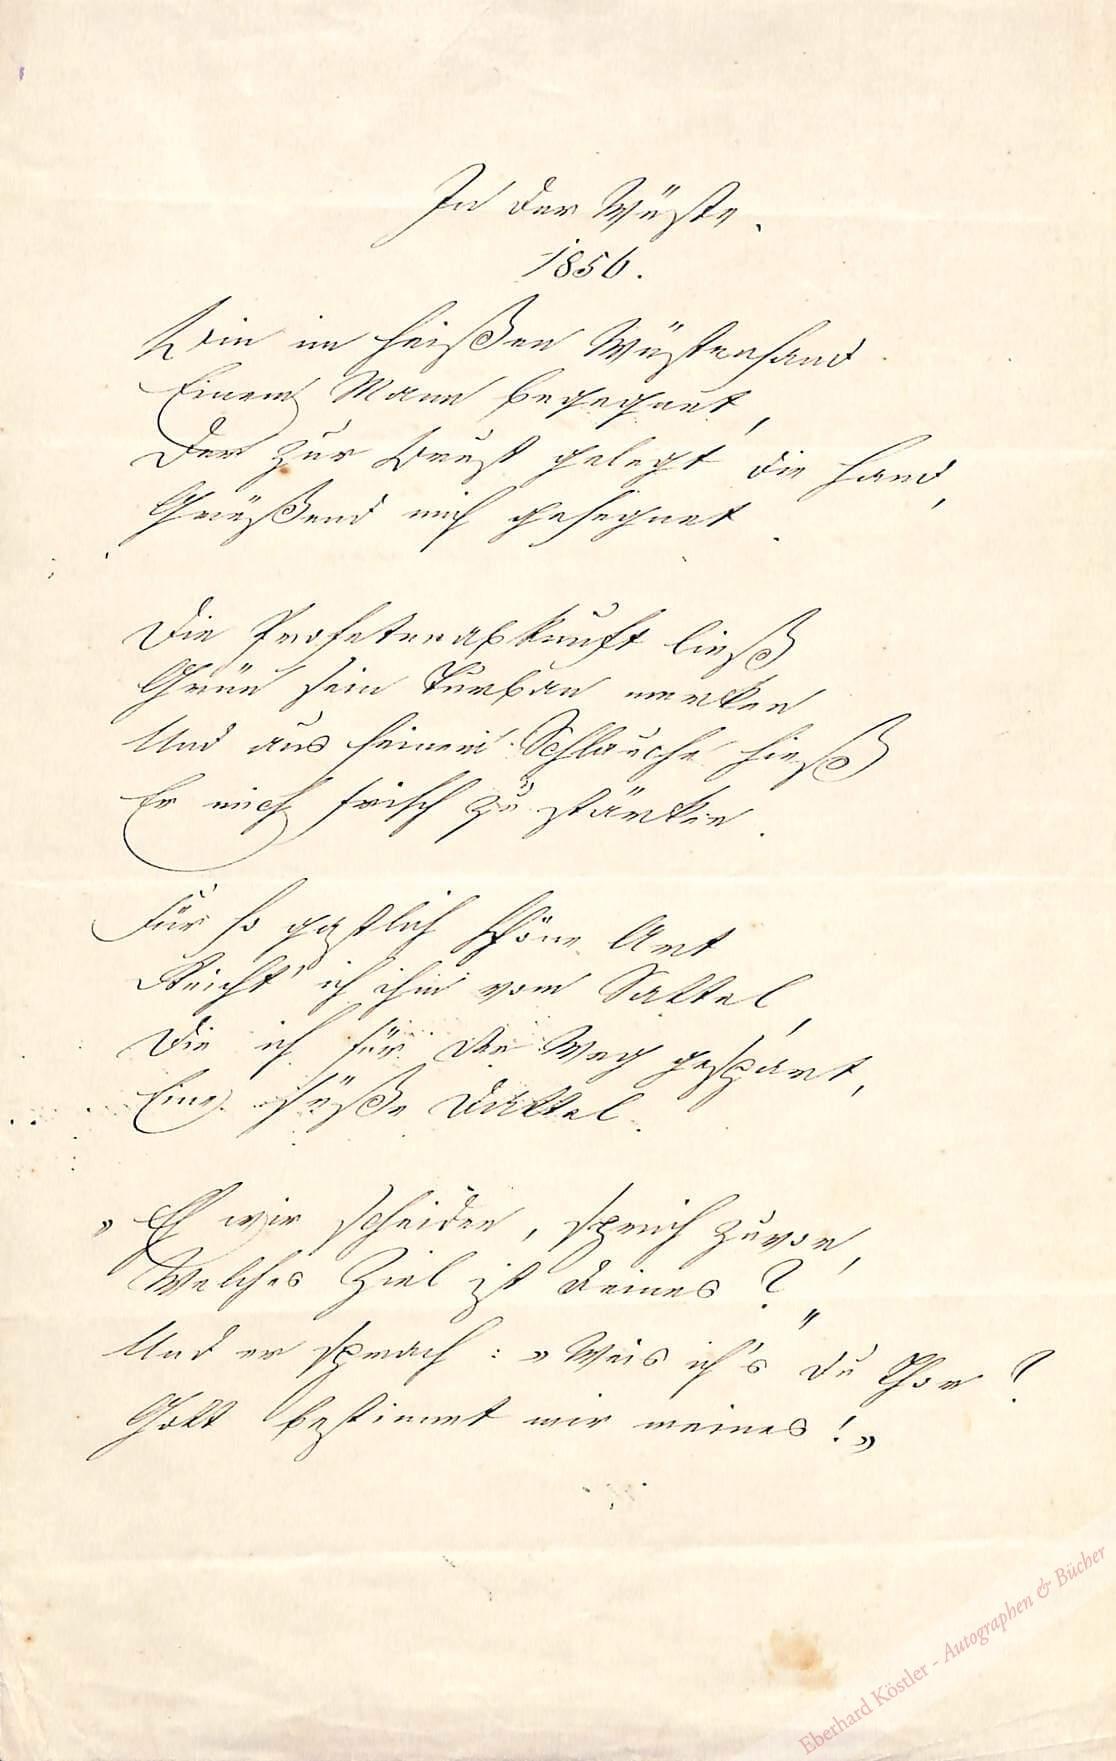 In der Wüste.
1856.
Bin im heißen Wüstensand
Einem Mann begegnet,
Der zur Brust gelegt die Hand,
Grüßend mich gesegnet.
Die Profetenabkunft ließ
Grün sein Turban merken
Und aus seinem Schlauche hieß
Er mich frisch zu stärken.
Für so gastlich schöne Art
Reicht' ich ihm vom Sattel,
Die ich für den Weg gespart,
Eine süße Dattel.
„Eh wir scheiden, sprich zuvor,
Welches Ziel ist deines?"
Und er sprach: „Weis ich's du Thor?
Gott bestimmt mir meines!"
Eberhard Köstler - Autographen & Bücher